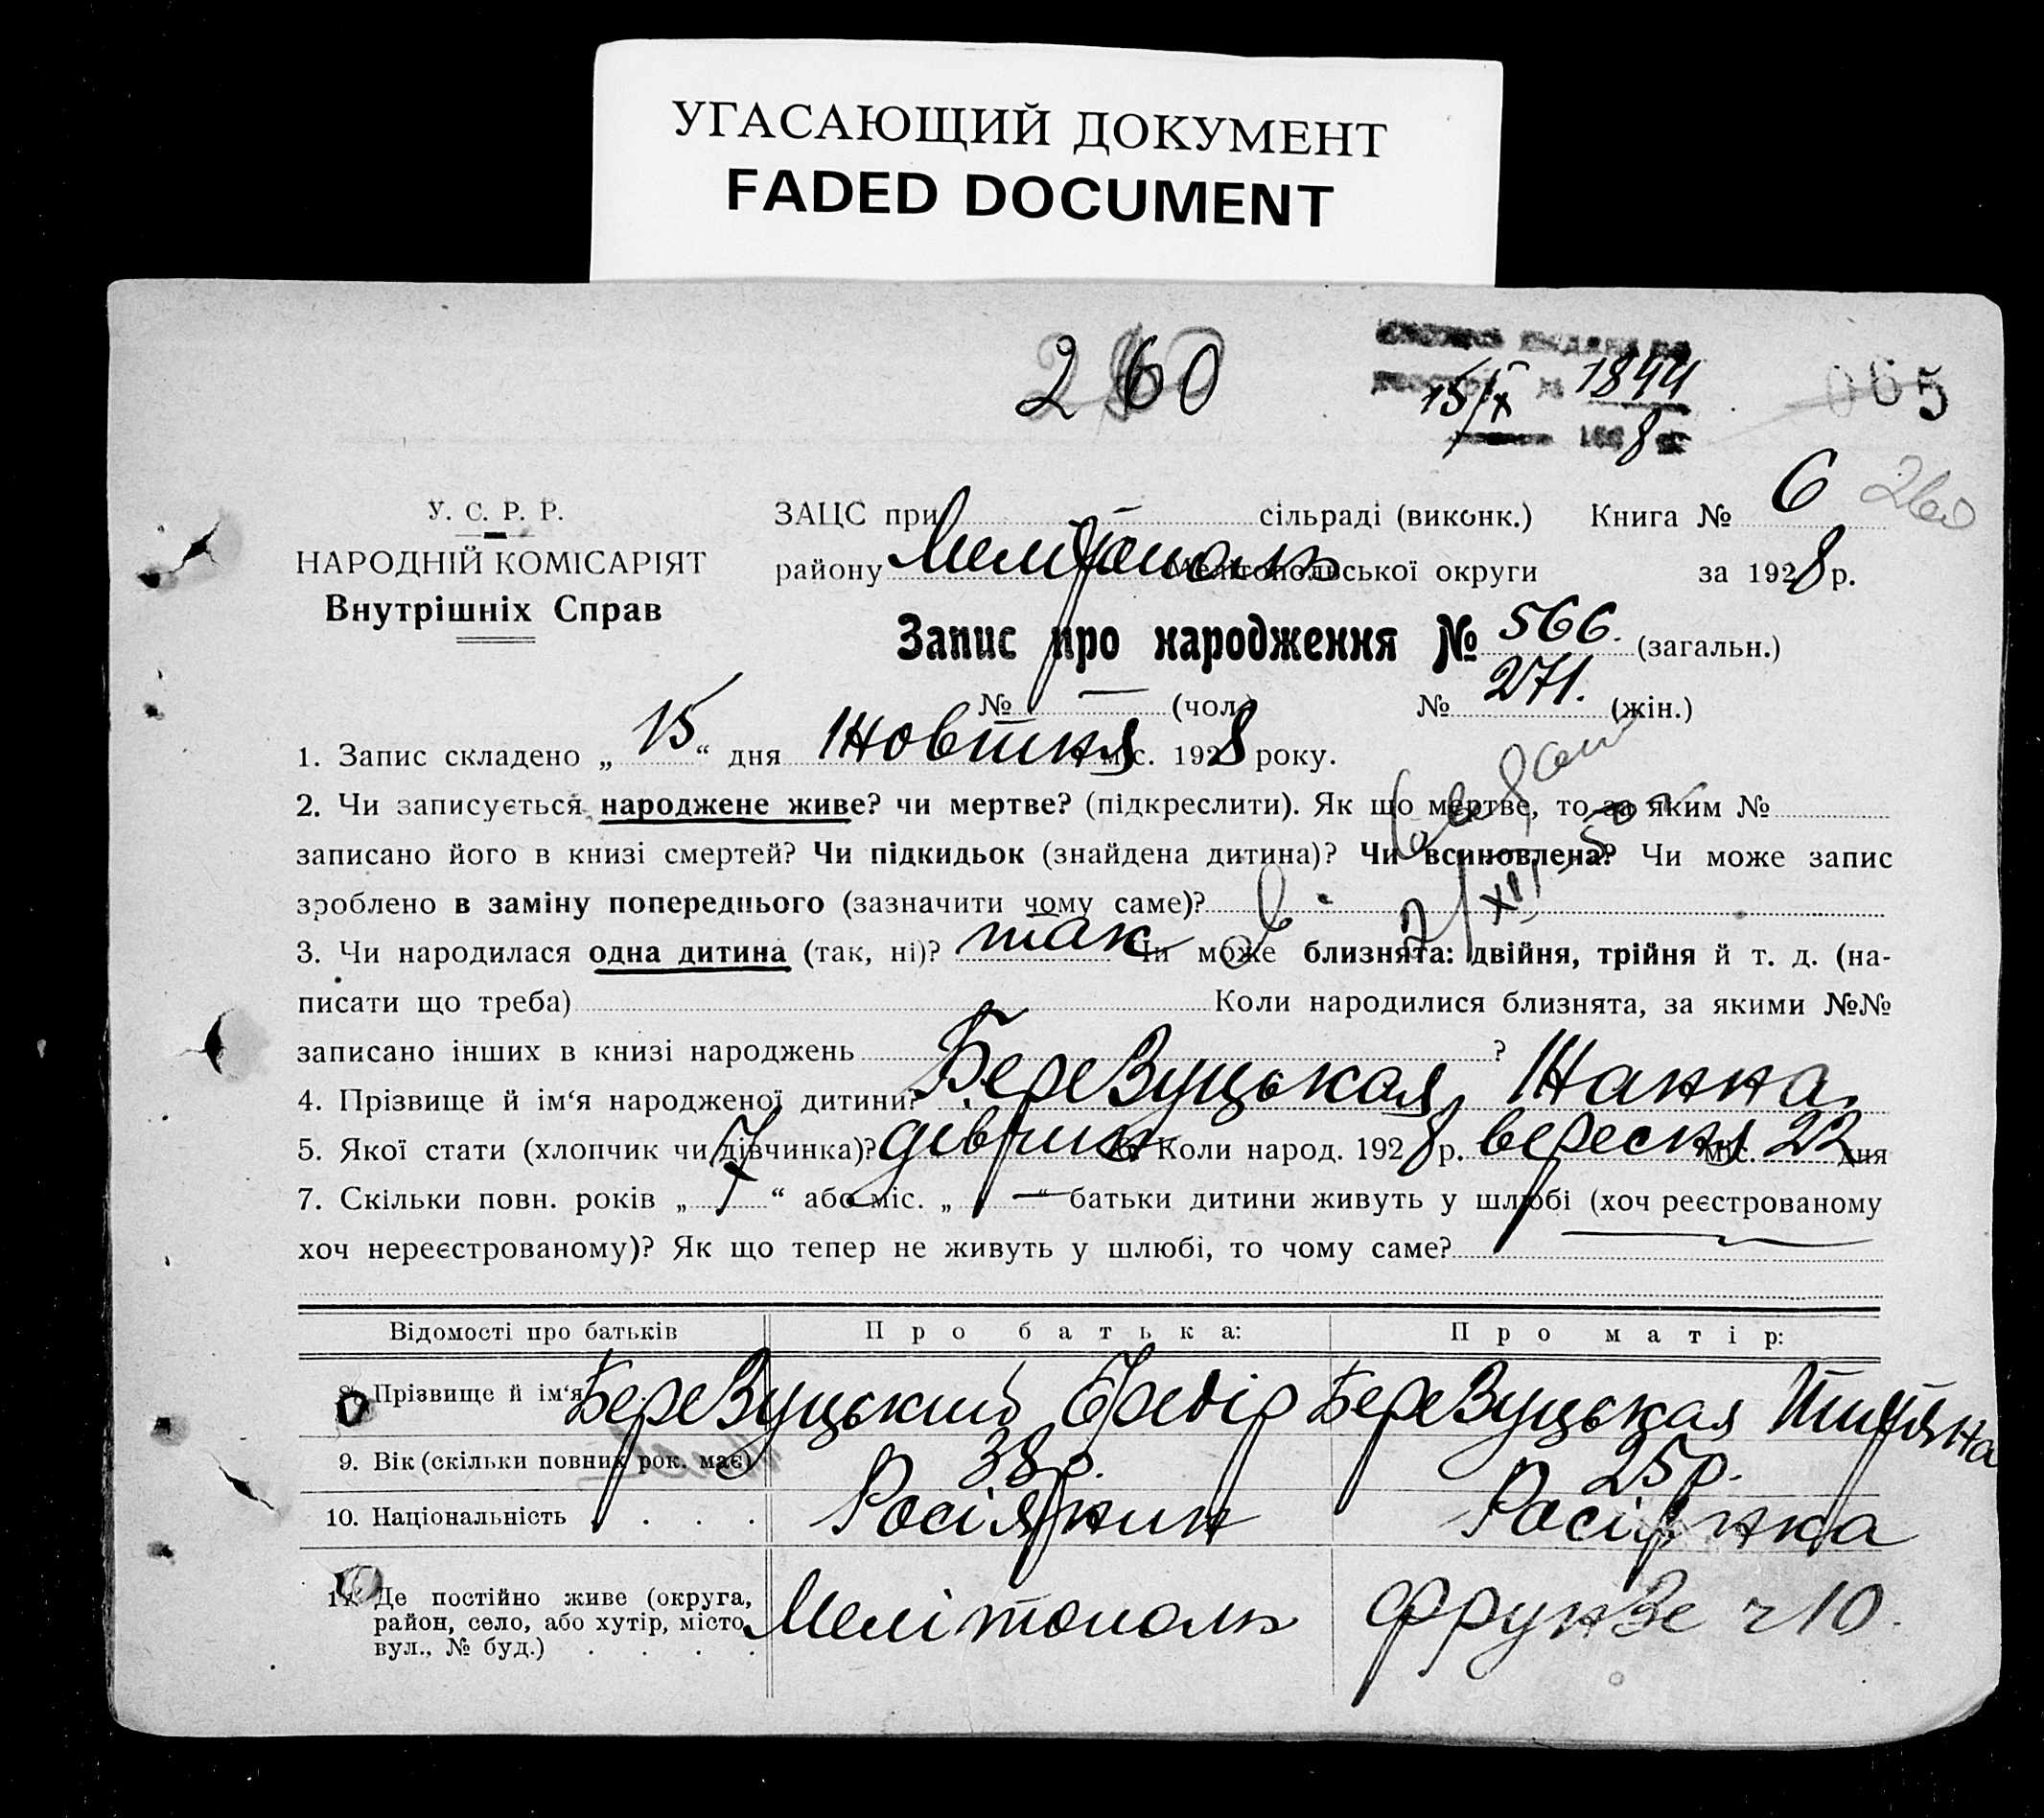 УГАСАЮЩИЙ ДОКУМЕНТ
FADED DOCUMENT
260
15/X 1844
8
065
У. С. Р. Р.
НАРОДНІЙ КОМІСАРІЯТ
Внутрішніх Справ
ЗАЦС при сільраді (виконк.) Книга № 6 260
району Мелітополь Мелітопольської округи за 1928 р.
Запис про народження № 566. (загальн.)
№ — (чол.) № 271. (жін.)
1. Запис складено „15“ дня Жовтня міс. 1928 року.
2. Чи записується народжене живе? чи мертве? (підкреслити). Як що мертве, то за яким №
записано його в книзі смертей? Чи підкидьок (знайдена дитина)? Чи всиновлена? Чи може запис
зроблено в заміну попереднього (зазначити чому саме)?
3. Чи народилася одна дитина (так, ні)? так Чи може близнята: двійня, трійня й т. д. (на-
писати що треба) Коли народилися близнята, за якими №№
записано інших в книзі народжень ?
4. Прізвище й ім‘я народженої дитини? Березуцькая Жанна
5. Якої стати (хлопчик чи дівчинка)? дівчин 6. Коли народ. 1928 р. вересня міс. 22 дня
7. Скільки повн. років „7“ або міс. „—“ батьки дитини живуть у шлюбі (хоч реєстрованому
хоч нереєстрованому)? Як що тепер не живуть у шлюбі, то чому саме?
Відомості про батьків Про батька: Про матір:
8. Прізвище й ім‘я Березуцький Федір Березуцькая Титяна
9. Вік (скільки повних рок. має) 38 р. 25 р.
10. Національність . . . . Росіянин Росіянка
11. Де постійно живе (округа,
район, село, або хутір, місто,
вул., № буд.) . . . . Мелітополь Фрунзе ч 10.